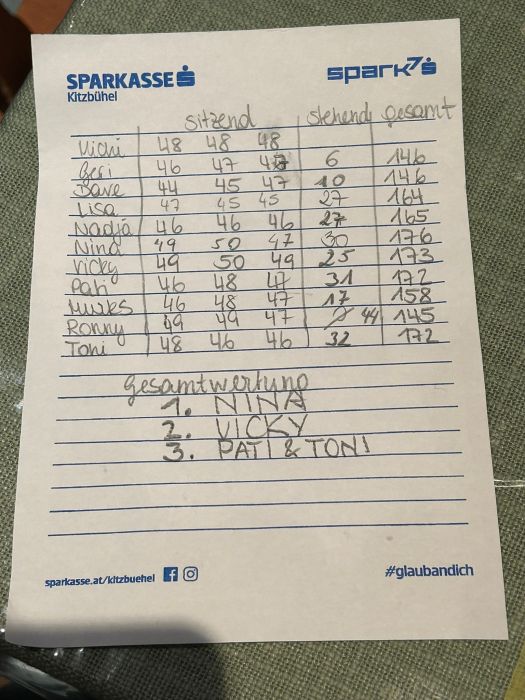 SPARKASSE
Kitzbühel
spark7
sitzend stehend gesamt
Vichi 48 48 48
Geri 46 47 47 6 146
Dave 44 45 47 10 146
Lisa 47 45 45 27 164
Nadja 46 46 46 27 165
Nina 49 50 47 30 176
Vicky 49 50 49 25 173
Pati 46 48 47 31 172
46 48 47 17 158
Ronny 49 49 47 44 145
Toni 48 46 46 32 172
Gesamtwertung
1. NINA
2. VICKY
3. PATI & TONI
sparkasse.at/kitzbuehel
#glaubandich